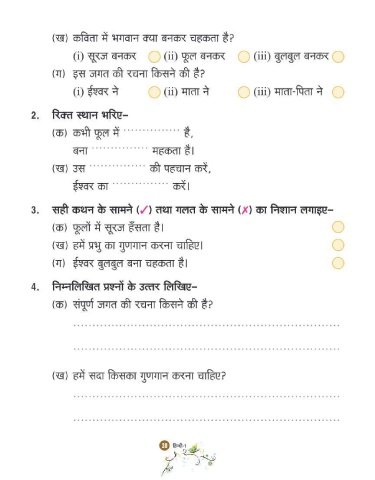 (ख) कविता में भगवान क्या बनकर चहकता है?
(i) सूरज बनकर (ii) फूल बनकर (iii) बुलबुल बनकर
(ग) इस जगत की रचना किसने की है?
(i) ईश्वर ने (ii) माता ने (iii) माता-पिता ने
2. रिक्त स्थान भरिए–
(क) कभी फूल में ............... है,
बना ............... महकता है।
(ख) उस ............... की पहचान करें,
ईश्वर का ............... करें।
3. सही कथन के सामने (✓) तथा गलत के सामने (✗) का निशान लगाइए–
(क) फूलों में सूरज हँसता है।
(ख) हमें प्रभु का गुणगान करना चाहिए।
(ग) ईश्वर बुलबुल बना चहकता है।
4. निम्नलिखित प्रश्नों के उत्तर लिखिए–
(क) संपूर्ण जगत की रचना किसने की है?
(ख) हमें सदा किसका गुणगान करना चाहिए?
हिन्दी-1